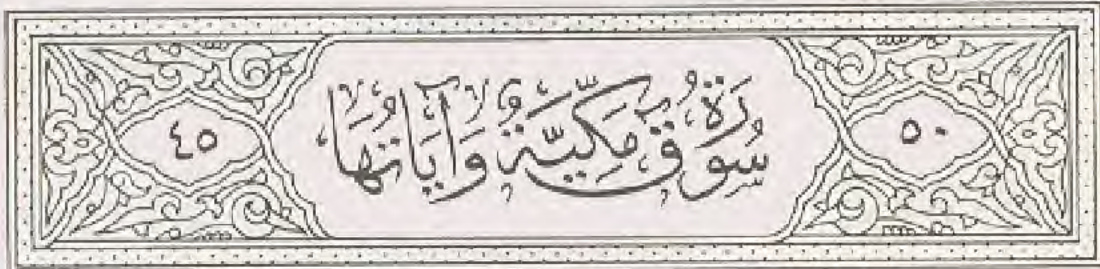 ٥٠
سُورَةُ قٓ مَكِّيَّةٌ وَآيَاتُهَا
٤٥